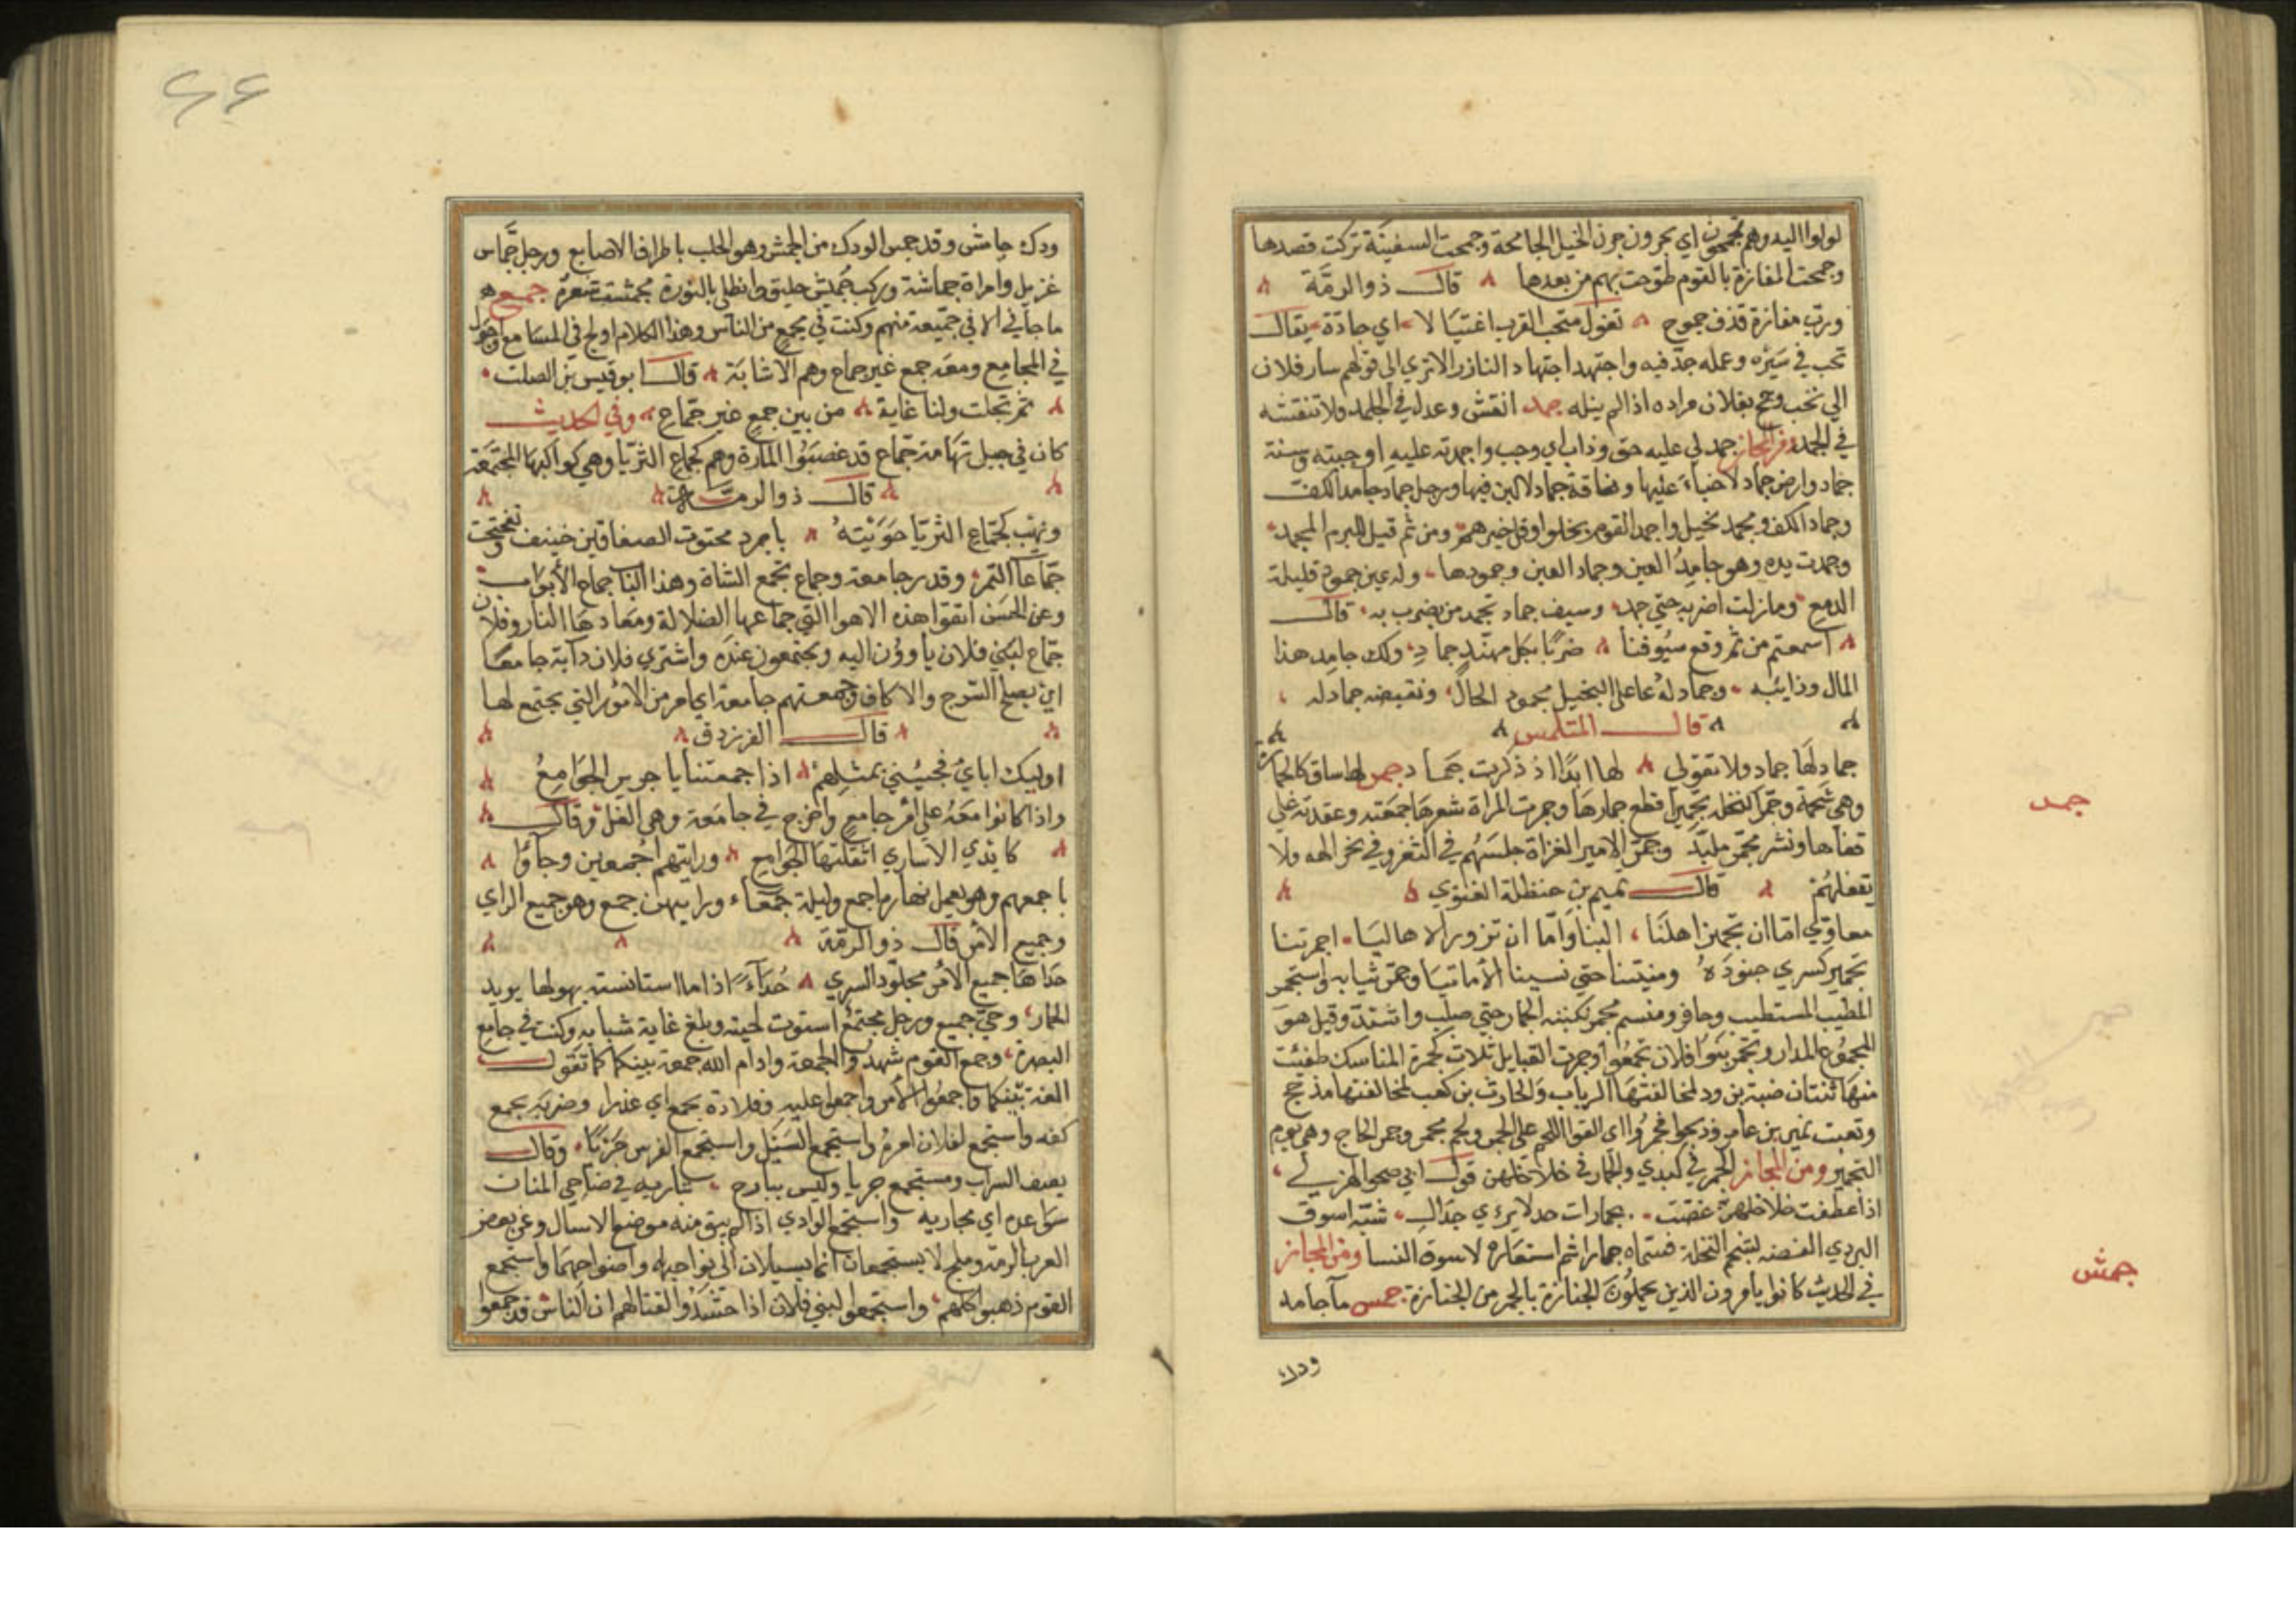 لولوا اليه وهم يجمحون اي يجرون جري الخيل الجامحة وجمحت السفينة تركت قصدها
وجمحت المفازة بالقوم طوحت بهم من بعدها قال ذو الرمة
ورب مفازة قذف جموح تغول منحب القرب اغتيالا اي جادة يقال
نحب في سيره وعمله جد فيه واجتهد اجتهاد الناذر الاتري الى قولهم سار فلان
الي نحب وجمح بفلان مراده اذا لم ينله جمد انقش وعدك في الجلمد ولا تنقشه
في الجمد ومن المجاز جمد لي عليه حق وذاب اي وجب واجمدته عليه اوجبته وسنة
جماد وارض جماد لا حياء عليها وناقة جماد لا لبن فيها ورجل جماد جامد الكف
وجماد الكف ومجمد بخيل واجمد القوم بخلوا وقل خيرهم ومن ثم قيل للبرم المجمد
وجمدت يده وهو جامد العين وجماد العين وجمودها وله عين جمود قليلة
الدمع ومازلت اضربه حتي جمد وسيف جماد يجمد من يضرب به قال
اسمعتم من ثم وقع سيوفنا ضربا بكل مهند جماد ولك جامد هذا
المال وذايبه وجماد له دعا علي البخيل بجمود الحال ونقيضه جماد له
قال المتلمس
جماد لها جماد ولا تقولي لها ابدا اذ ذكرت جماد جمر لها ساق كالجمارة
وهي شحمة وجمر النخل تجميرا قطع جمارها وجمرت المراة شعرها جمعته وعقدته علي
قفاها ونشر مجمر ملبد وجمر الامير الغزاة حبسهم في الثغر وفي نحر العدو ولا
يقفلهم قال تميم بن حنظلة الغنوي
معاوي اما ان تجهز اهلنا الينا واما ان تزور الاهاليا اجمرتنا
تجمير كسري جنوده ومنيتنا حتي نسينا الامانيا وجمر ثيابه واستجمر
المطيب المستطيب وحافر ومنسم مجمر نكبته الجمار حتي صلب واشتد وقيل هو
المجموع المدار وتجمر بنوا فلان تجمعوا وجمرت القبايل ثلاث كجمرة المناسك طفئت
منها ثنتان ضبة بن ود لمخالفتها الرباب والحارث بن كعب لمخالفتها مذحج
وبقيت نمير بن عامر وذبحوا فجمروا اي القوا اللحم علي الجمر ولحم مجمر وجمر الحاج وهي يوم
التجمير ومن المجاز الجمر في كبدي والجمار في خلاخلهن قول ابي صخر الهذلي
اذا عطفت خلاخلهن غصت بجمارات بردي خدال شبه اسوق
البردي الغضة بشحم النخلة فسماه جمارا ثم استعاره لاسوق النسا ومن المجاز
في الحديث كانوا يامرون الذين يحملون الجنازة بالجمز من الجنازة جمس مآ جامد
ودك
جمد
جمش
ودك جامس وقد جمس الودك من الجمش وهو الحلب باطراف الاصابع ورجل جماش
غزيل وامراة جماشة وركب جميش حليق وانطلي بالنورة فجمشت شعره جمع
ما جاني الا في جميعة منهم وكنت في مجمع من الناس وهذا الكلام اولج في المسامع واجول
في المجامع ومعه جمع غير جماع وهم الاشابة قال ابو قيس بن الصلت
ثم تجلت ولنا غاية من بين جمع غير جماع وفي الحديث
كان في جبل تهامة جماع قد غصبوا المارة وهم كجماع الثريا وهي كواكبها المجتمعة
قال ذو الرمة
ونهب كجماع الثريا حويته باجرد محتوت الصفاقين خيفف وتفتحت
جماعات التمر وقدر جامعة وجماع تجمع الشاة وهذا الباب جماع الأبواب
وعن الحسن اتقوا هذه الاهوا التي جماعها الضلالة ومعادها النار وفلان
جماع لبني فلان ياوون اليه ويجتمعون عنده واشتري فلان دابة جامعا
اي يصلح للسرج والاكاف وجمعتهم جامعة اي امر من الامور التي يجتمع لها
قال الفرزدق
اوليك اباي فجيني بمثلهم اذا جمعتنا يا جرير الجوامع
واذا كانوا معه على امر جامع واخرج في جامعة وهي الغل وقال
كايدي الاساري اثقلتها الجوامع ورايتهم اجمعين وجاؤا
باجمعهم وهو يعمل نهاره اجمع وليلة جمعاء ورايتهن جمع وهو جميع الراي
وجميع الامر قال ذو الرمة
حداها جميع الامر مجلوذ السري حداء اذا ما استانسته يهولها يريد
الحمار وحي جميع ورجل مجتمع استوت لحيته وبلغ غاية شبابه وكنت في جامع
البصرة وجمع القوم شهدوا الجمعة وادام الله جمعة بينكما كما تقول
الفة بينكما واجمعوا الامر واجمعوا عليه وفلانة بجمع اي عذرا وضربه بجمع
كفه واستجمع لفلان امره واستجمع السيل واستجمع الفرس جريا وقال
يصف السراب ومستجمع جريا وليس ببارح تباريه في ضاحي المتان
سواعده اي مجاريه واستجمع الوادي اذا لم يبق منه موضع الا سال وعن بعض
العرب الرمة وفلج لا يستجمعان انما يسيلان الى نواحيها واضواجهما واستجمع
القوم ذهبوا كلهم واستجمعوا لبني فلان اذا حشدوا لقتالهم ان الناس قد جمعوا